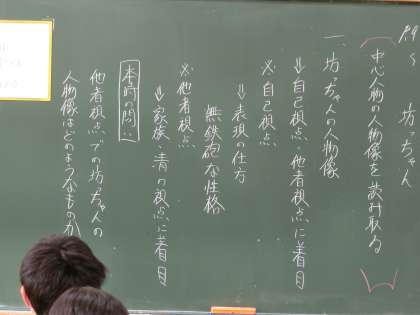 P.94~ 坊っちゃん
中心人物の人物像を読み取る
一、坊っちゃんの人物像
⇒自己視点・他者視点に着目
※自己視点
⇒表現の仕方
無鉄砲な性格
※他者視点
⇒家族・清の視点に着目
本時の問い
他者視点での坊っちゃんの
人物像はどのようなものか